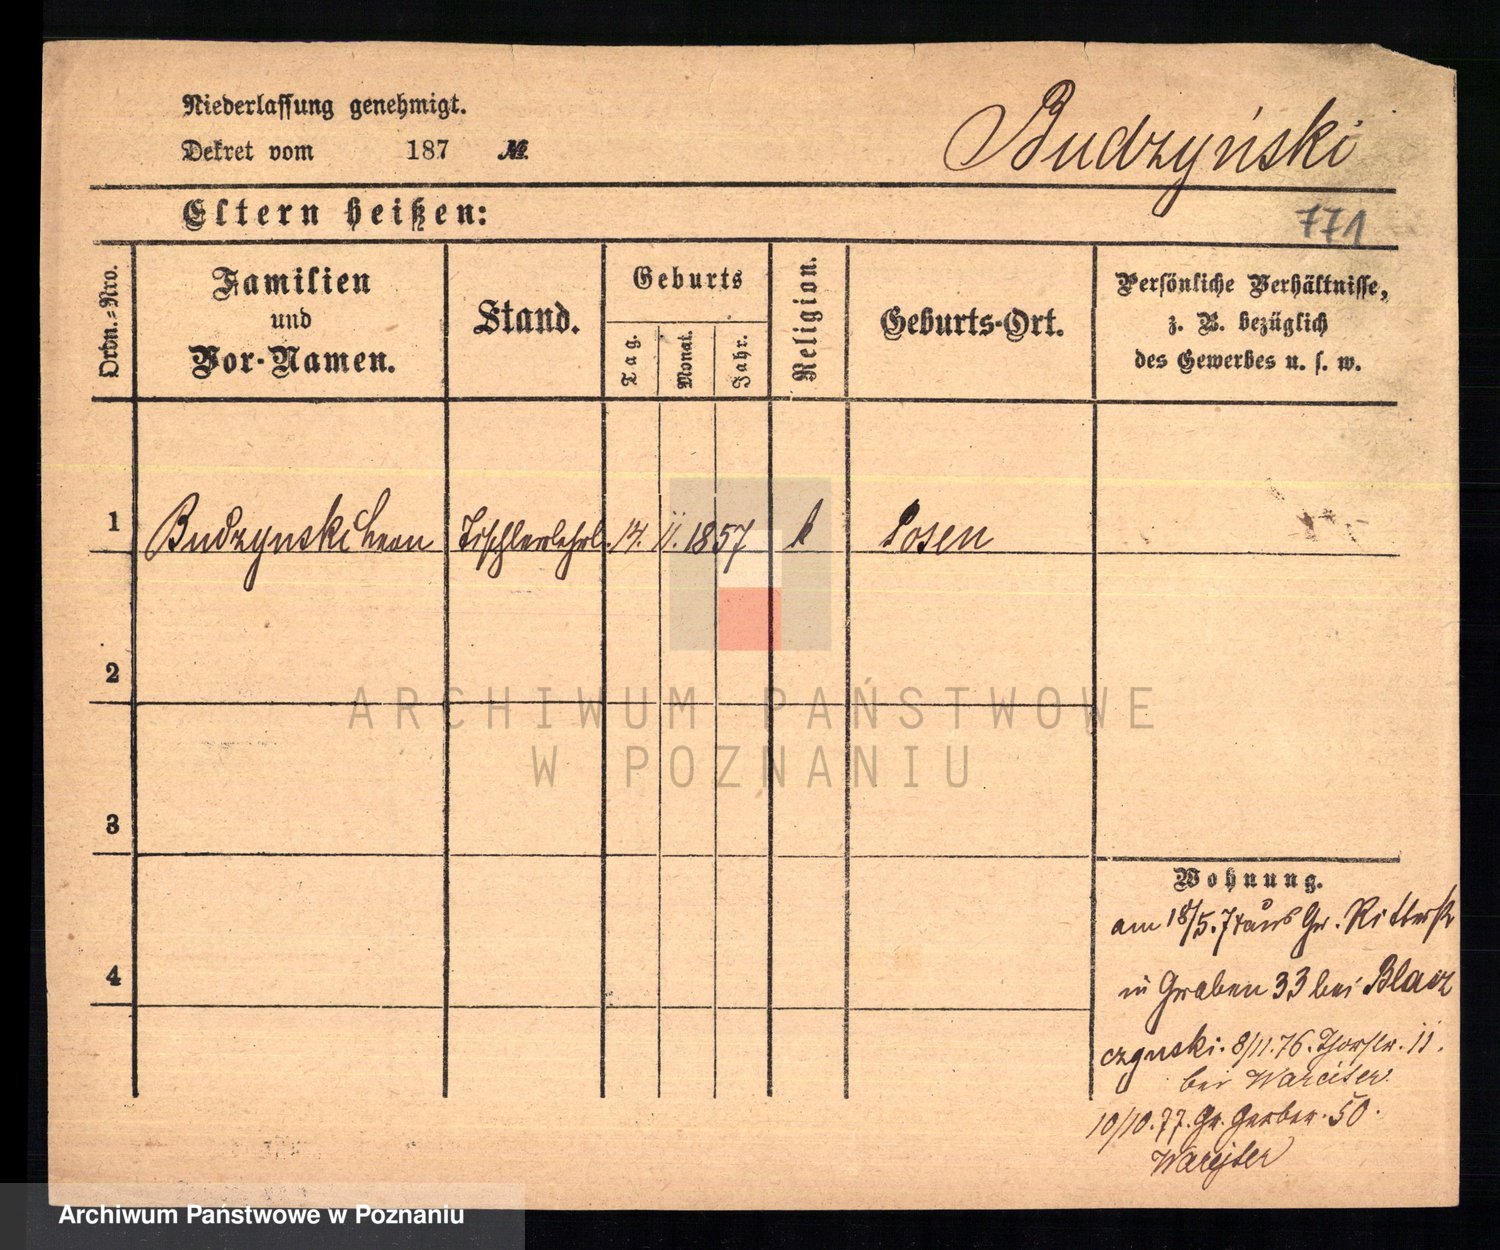 Niederlassung genehmigt.
Dekret vom 187 №
Budzyński
Eltern heißen:
771
Ordn.-Nro.
Familien
und
Vor-Namen.
Stand.
Geburts
Tag.
Monat.
Jahr.
Religion.
Geburts-Ort.
Persönliche Verhältnisse,
z. B. bezüglich
des Gewerbes u. s. w.
1 Budzynski Leon Tischlerlehrl. 14. 11. 1857 k Posen
2
3
4
Wohnung.
am 18/5.74 aus Gr. Ritterstr
in Graben 33 bei Blacz
czynski. 8/11.76. Thorstr. 11.
bei Warcister
10/10.77. Gr. Gerber. 50.
ARCHIWUM PAŃSTWOWE
W POZNANIU
Archiwum Państwowe w Poznaniu